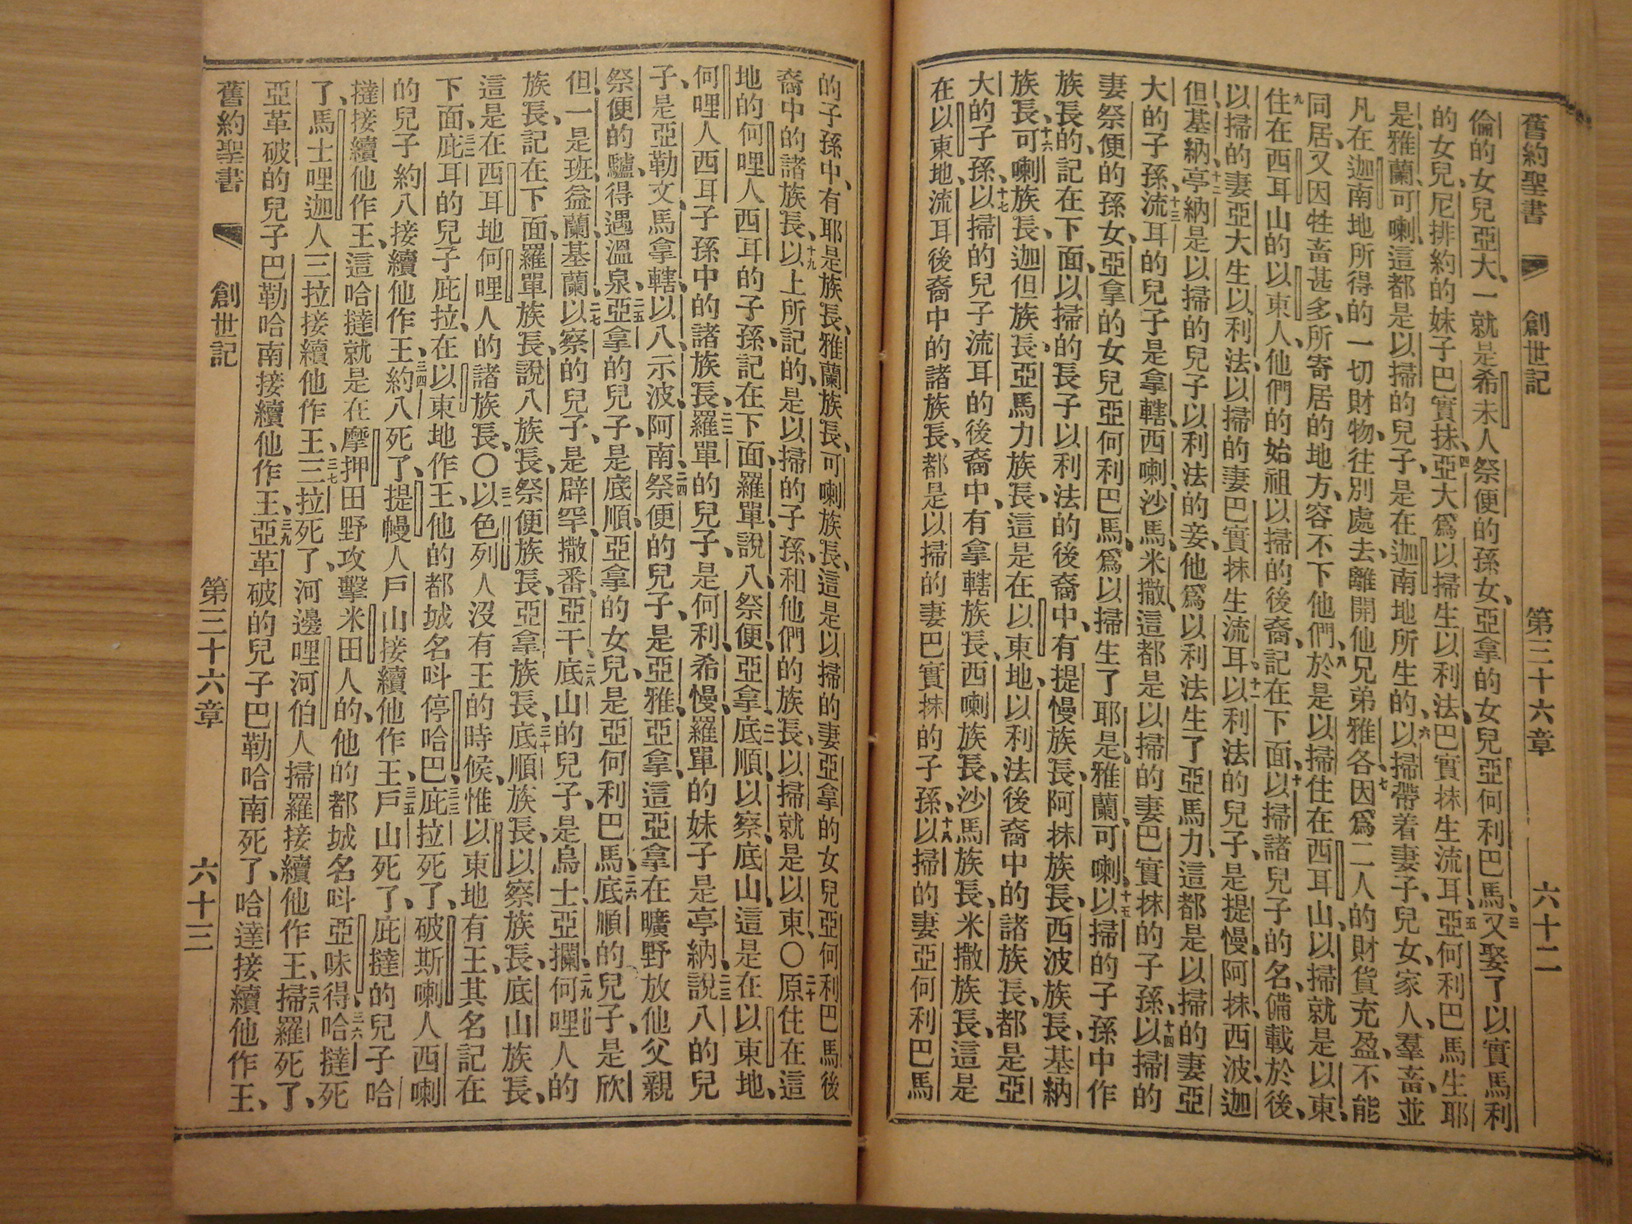 舊約聖書 創世記 第三十六章 六十二
倫的女兒亞大、一就是希未人祭便的孫女、亞拿的女兒亞何利巴馬、三又娶了以實馬利
的女兒尼排約的妹子巴實抹、四亞大爲以掃生以利法、巴實抹生流耳、五亞何利巴馬生耶
是雅蘭可喇、這都是以掃的兒子、是在迦南地所生的、六以掃帶着妻子、兒女、家人、羣畜、並
凡在迦南地所得的一切財物、往別處去、離開他兄弟雅各、七因爲二人的財貨充盈、不能
同居、又因牲畜甚多、所寄居的地方、容不下他們、八於是以掃住在西耳山、以掃就是以東、
九住在西耳山的以東人、他們的始祖以掃的後裔、記在下面、十以掃諸兒子的名、備載於後、
以掃的妻亞大生以利法、以掃的妻巴實抹生流耳、十一以利法的兒子、是提慢、阿抹、西波、迦
但、基納、十二亭納是以掃的兒子以利法的妾、他爲以利法生了亞馬力、這都是以掃的妻亞
大的子孫、十三流耳的兒子是拿轄、西喇、沙馬、米撒、這都是以掃的妻巴實抹的子孫、十四以掃的
妻祭便的孫女、亞拿的女兒亞何利巴馬、爲以掃生了耶是、雅蘭、可喇、十五以掃的子孫中作
族長的、記在下面、以掃的長子以利法的後裔中、有提慢族長、阿抹族長、西波族長、基納
族長、十六可喇族長、迦但族長、亞馬力族長、這是在以東地、以利法後裔中的諸族長、都是亞
大的子孫、十七以掃的兒子流耳的後裔中、有拿轄族長、西喇族長、沙馬族長、米撒族長、這是
在以東地、流耳後裔中的諸族長、都是以掃的妻巴實抹的子孫、十八以掃的妻亞何利巴馬
的子孫中、有耶是族長、雅蘭族長、可喇族長、這是以掃的妻亞拿的女兒亞何利巴馬後
裔中的諸族長、十九以上所記的、是以掃的子孫和他們的族長、以掃就是以東、〇二十原住在這
地的何哩人西耳的子孫、記在下面、羅單、說八、祭便、亞拿、二一底順、以察、底山、這是在以東地、
何哩人西耳子孫中的諸族長、二二羅單的兒子、是何利、希慢、羅單的妹子是亭納、二三說八的兒
子、是亞勒文、馬拿轄、以八、示波、阿南、二四祭便的兒子、是亞雅、亞拿、這亞拿在曠野放他父親
祭便的驢、得遇溫泉、二五亞拿的兒子、是底順、亞拿的女兒、是亞何利巴馬、二六底順的兒子、是欣
但、一是班、益蘭、基蘭、二七以察的兒子、是辟罕、撒番、亞干、二八底山的兒子、是烏士、亞攔、二九何哩人的
族長、記在下面、羅單族長、說八族長、祭便族長、亞拿族長、三十底順族長、以察族長、底山族長、
這是在西耳地何哩人的諸族長、〇三一以色列人沒有王的時候、惟以東地有王、其名記在
下面、三二庇耳的兒子庇拉、在以東地作王、他的都城名呌停哈巴、三三庇拉死了、破斯喇人西喇
的兒子約八、接續他作王、三四約八死了、提幔人戶山接續他作王、三五戶山死了、庇撻的兒子哈
撻接續他作王、這哈撻就是在摩押田野攻擊米田人的、他的都城名呌亞味得、三六哈撻死
了、馬士哩迦人三拉接續他作王、三七三拉死了、河邊哩河伯人掃羅接續他作王、三八掃羅死了、
亞革破的兒子巴勒哈南接續他作王、三九亞革破的兒子巴勒哈南死了、哈達接續他作王、
舊約聖書 創世記 第三十六章 六十三